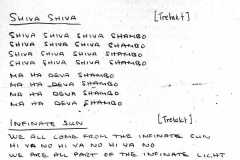 SHIVA SHIVA [Treloki]
SHIVA SHIVA SHIVA SHAMBO
SHIVA SHIVA SHIVA SHAMBO
SHIVA SHIVA SHIVA SHAMBO
SHIVA SHIVA SHIVA SHAMBO
MA HA DEVA SHAMBO
MA HA DEVA SHAMBO
MA HA DEVA SHAMBO
MA HA DEVA SHAMBO
INFINATE SUN [Treloki]
WE ALL COME FROM THE INFINATE SUN
HI YA NO HI YA NO HI YA NO
WE ARE ALL PART OF THE INFINATE LIGHT